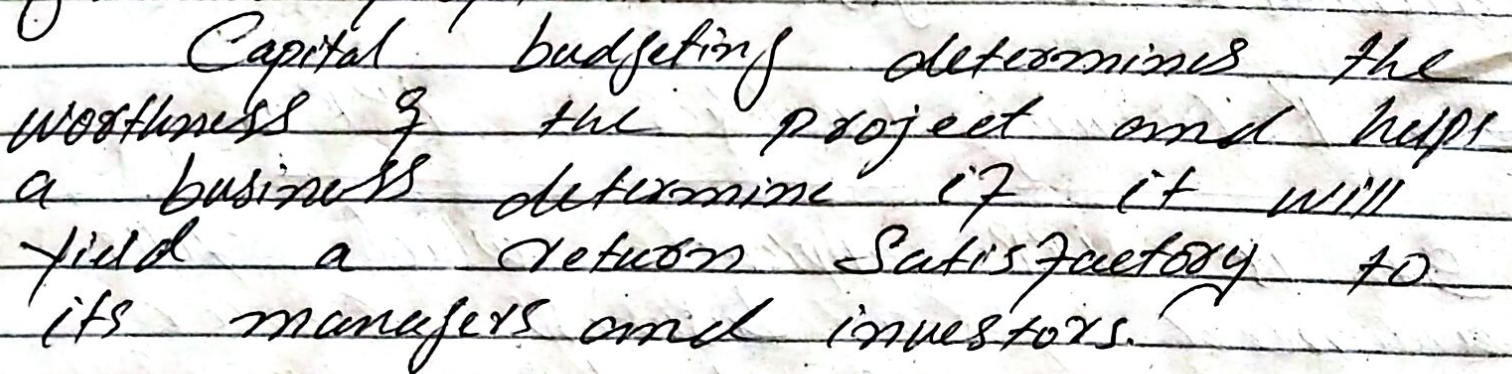 Capital budgeting determines the
worthness of the project and helps
a business determine if it will
yield a return satisfactory to
its managers and investors.